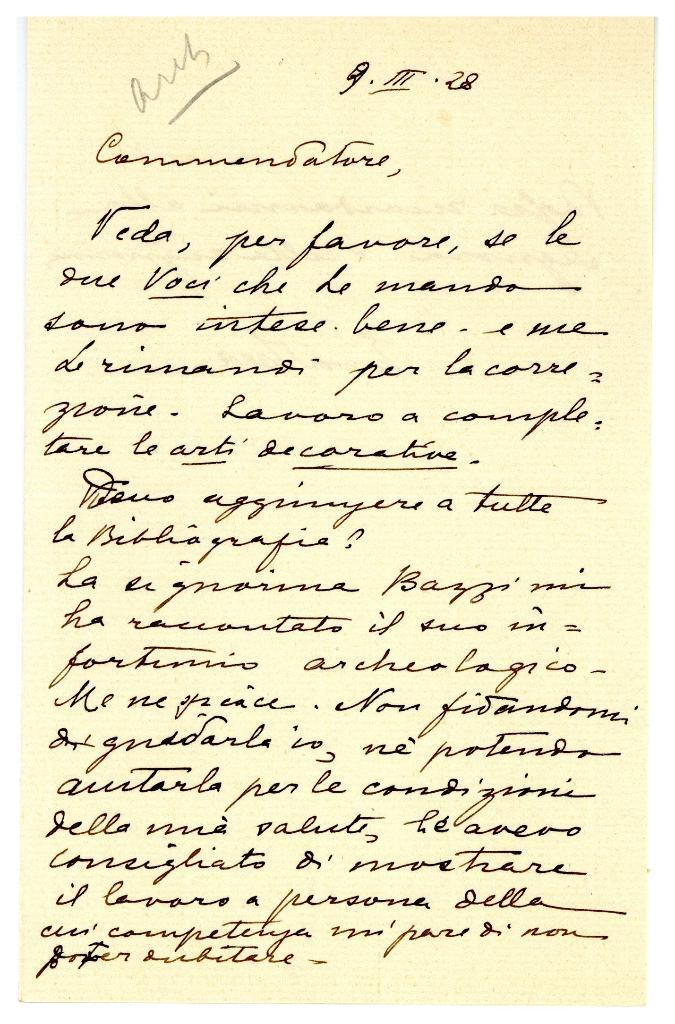 arch
9. III. 28
Commendatore,
Veda, per favore, se le
due Voci che Le mando
sono intese bene - e me
Le rimandi per la corre=
zione. Lavoro a comple=
tare le arti decorative.
Devo aggiungere a tutte
la Bibliografia?
La signorina Bazzi mi
ha raccontato il suo in=
fortunio archeologico -
Me ne spiace. Non fidandomi
di guidarla io, nè potendo
aiutarla per le condizioni
della mia salute, le avevo
consigliato di mostrare
il lavoro a persona della
cui competenza mi pare di non
poter dubitare -